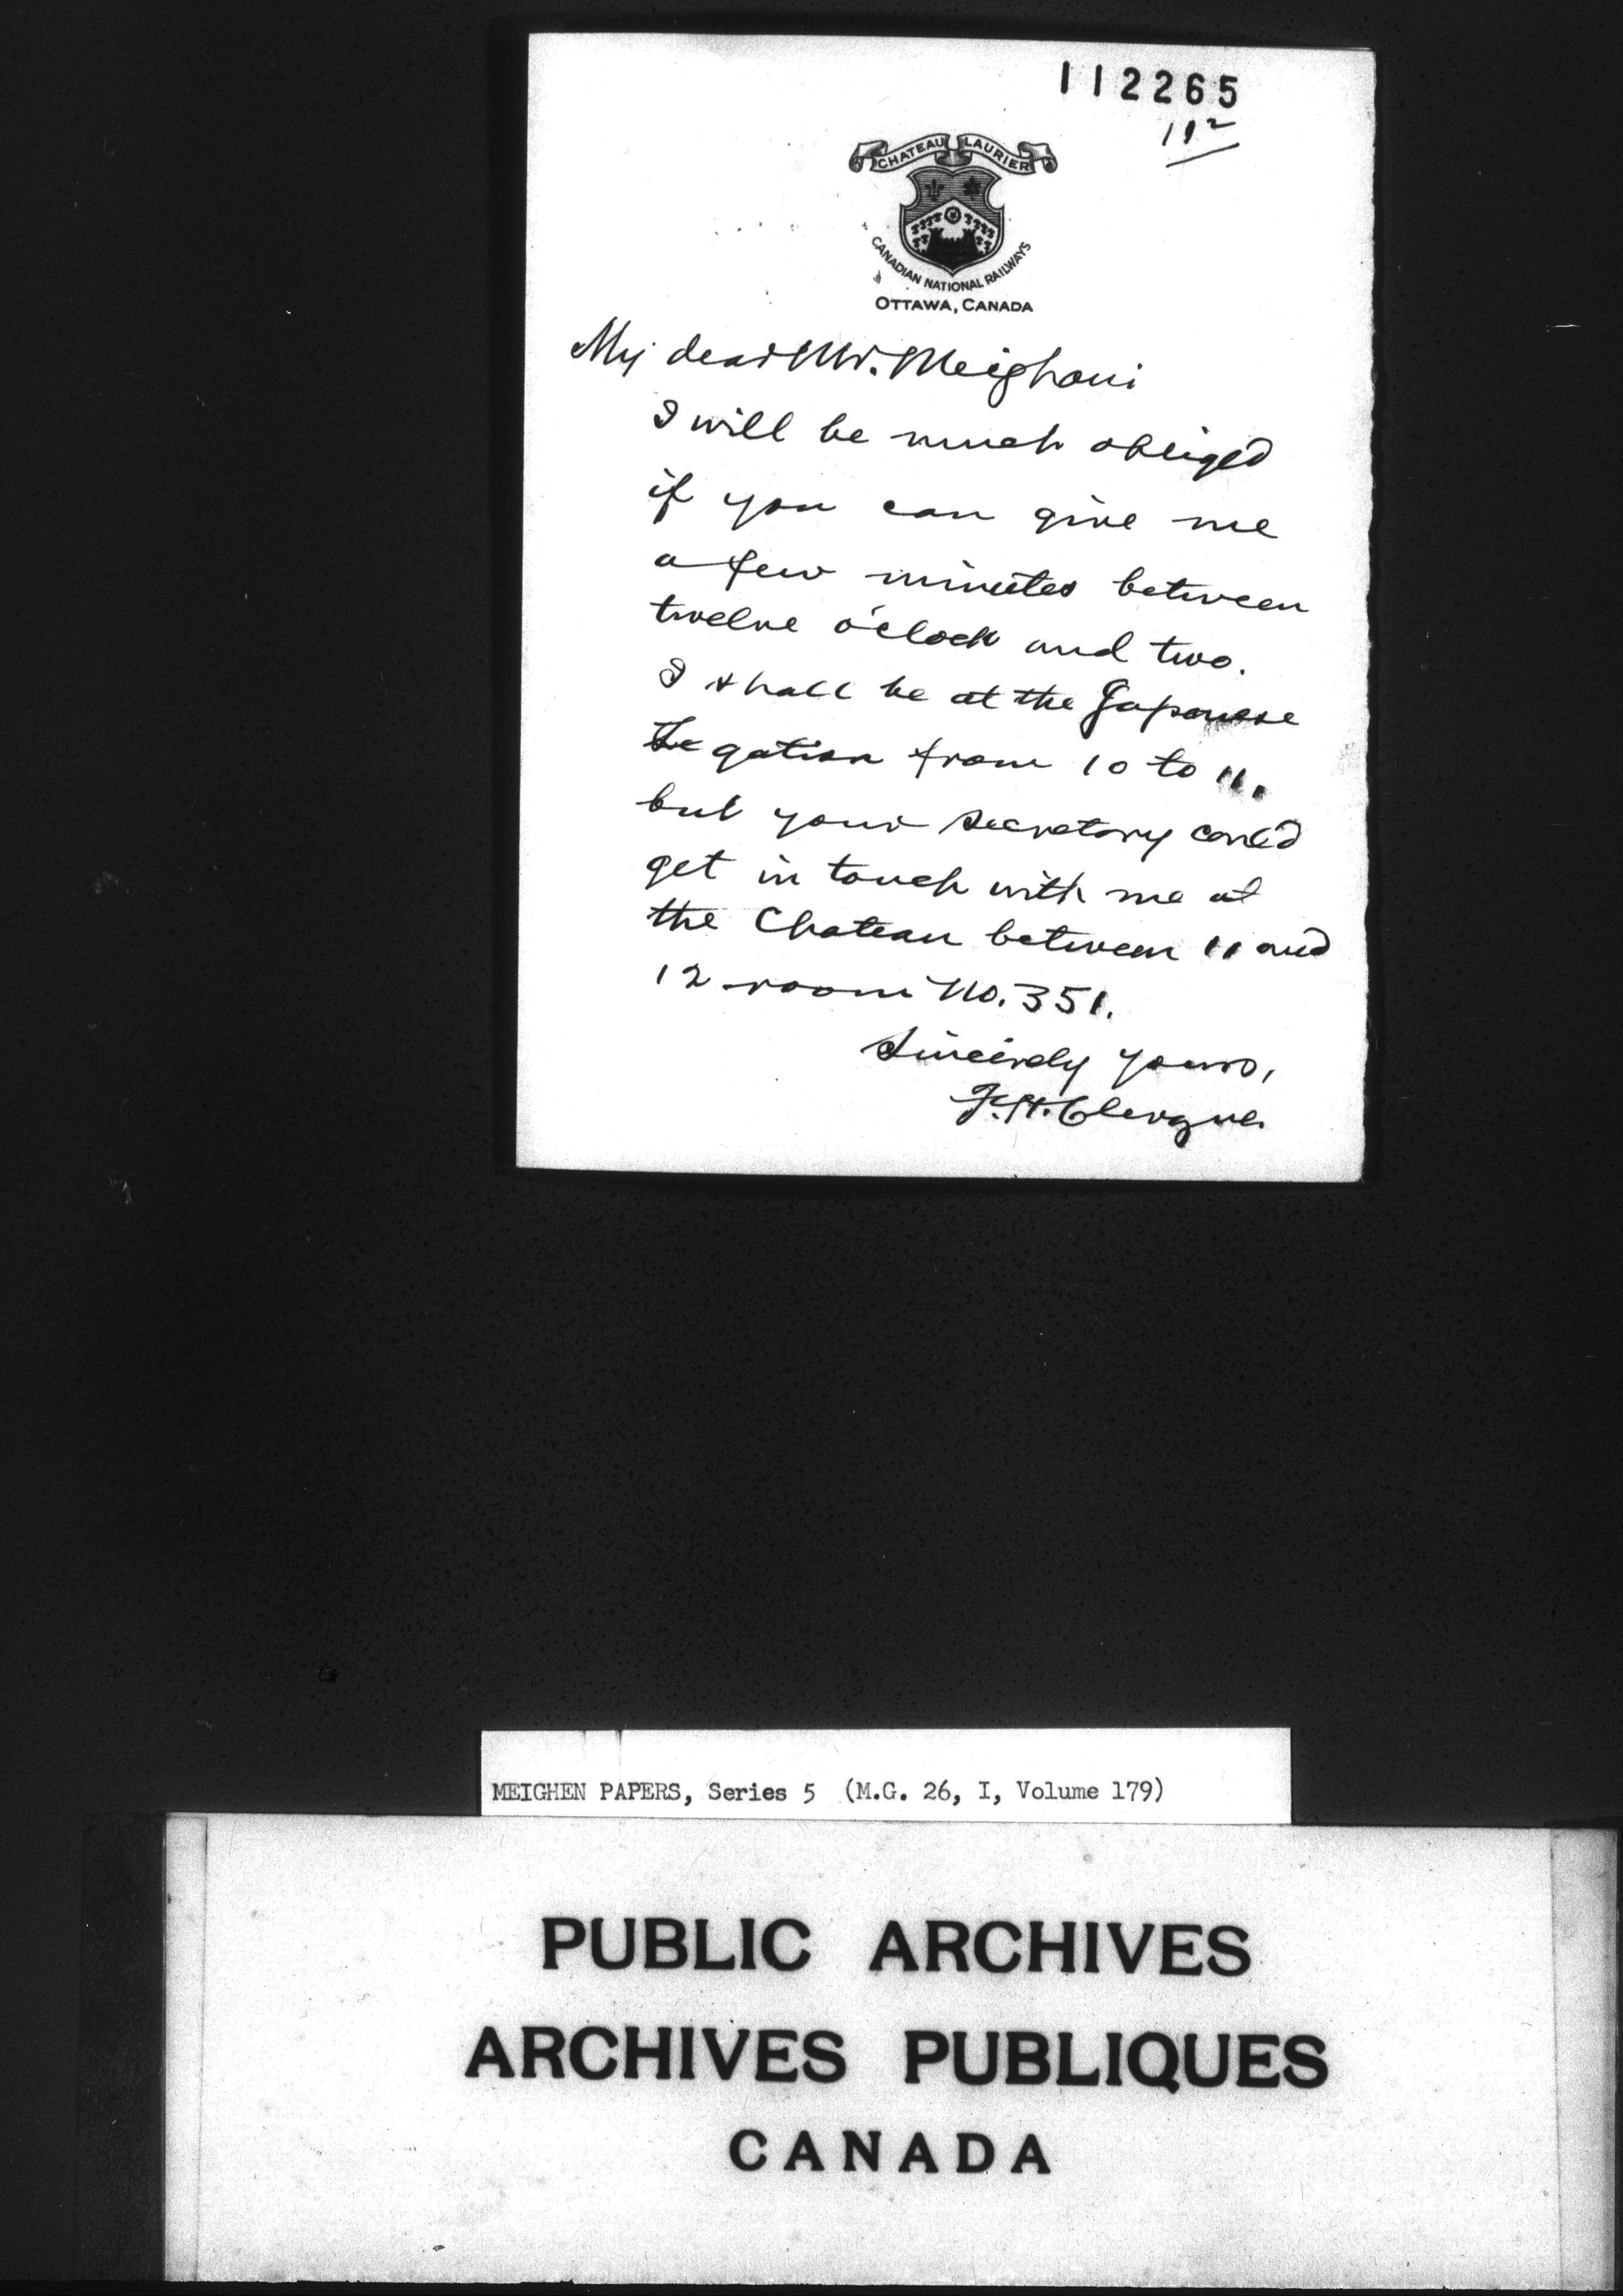 112265
11²
CHATEAU LAURIER
CANADIAN NATIONAL RAILWAYS
OTTAWA, CANADA
My dear Mr. Meighan:
I will be much obliged
if you can give me
a few minutes between
twelve o'clock and two.
I shall be at the Japanese
Legation from 10 to 11.
but your secretary could
get in touch with me at
the Chateau between 11 and
12 room No. 351.
Sincerely yours,
F. H. Clergue.
MEIGHEN PAPERS, Series 5 (M.G. 26, I, Volume 179)
PUBLIC ARCHIVES
ARCHIVES PUBLIQUES
CANADA